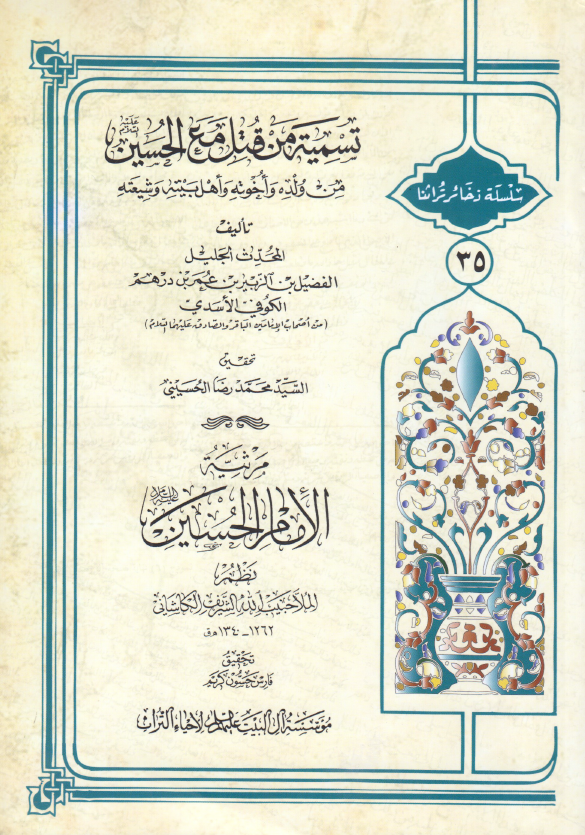 تسمية من قتل مع الحسين عليه السلام
من ولده وأخوته وأهل بيته وشيعته
تأليف
المحدث الجليل
الفضيل بن الزبير بن عمر بن درهم
الكوفي الأسدي
(من أصحاب الإمامين الباقر والصادق عليهما السلام)
تحقيق
السيد محمد رضا الحسيني
مرثية
الإمام الحسين عليه السلام
نظم
الملا حبيب الله الشريف الكاشاني
١٢٦٢ - ١٣٤٠ هـ ق
تحقيق
فارس حسون كريم
مؤسسة آل البيت عليهم السلام لإحياء التراث
سلسلة ذخائر تراثنا
٣٥